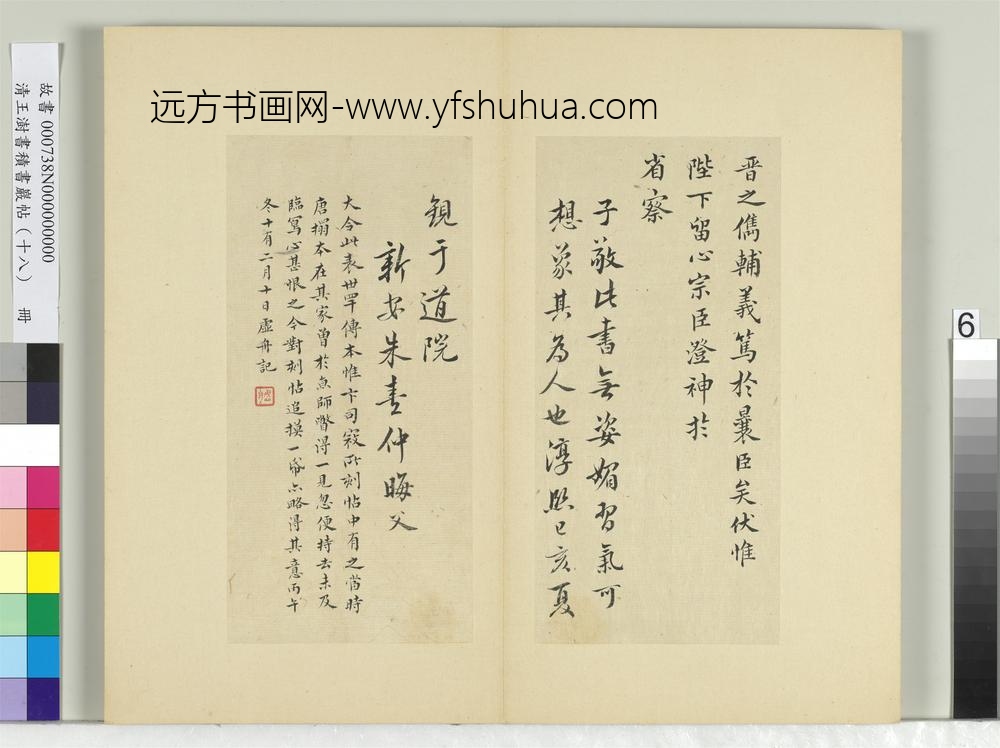 远方书画网-www.yfshuhua.com
晋之儁輔義篤於曩臣矣伏惟
陛下留心宗臣澄神於
省察
子敬此書無姿媚習氣可
想象其為人也淳熙己亥夏
觀于道院
新安朱熹仲晦父
大令此表世罕傳本惟卞司寇所刻帖中有之當時
唐搨本在其家曾於魚師瞥得一見忽便持去未及
臨寫心甚恨之今對刻帖追摸一幣亦略得其意丙午
冬十有二月十日虛舟記
故書 000738N000000000
清王澍書積書巖帖（十八） 冊
6